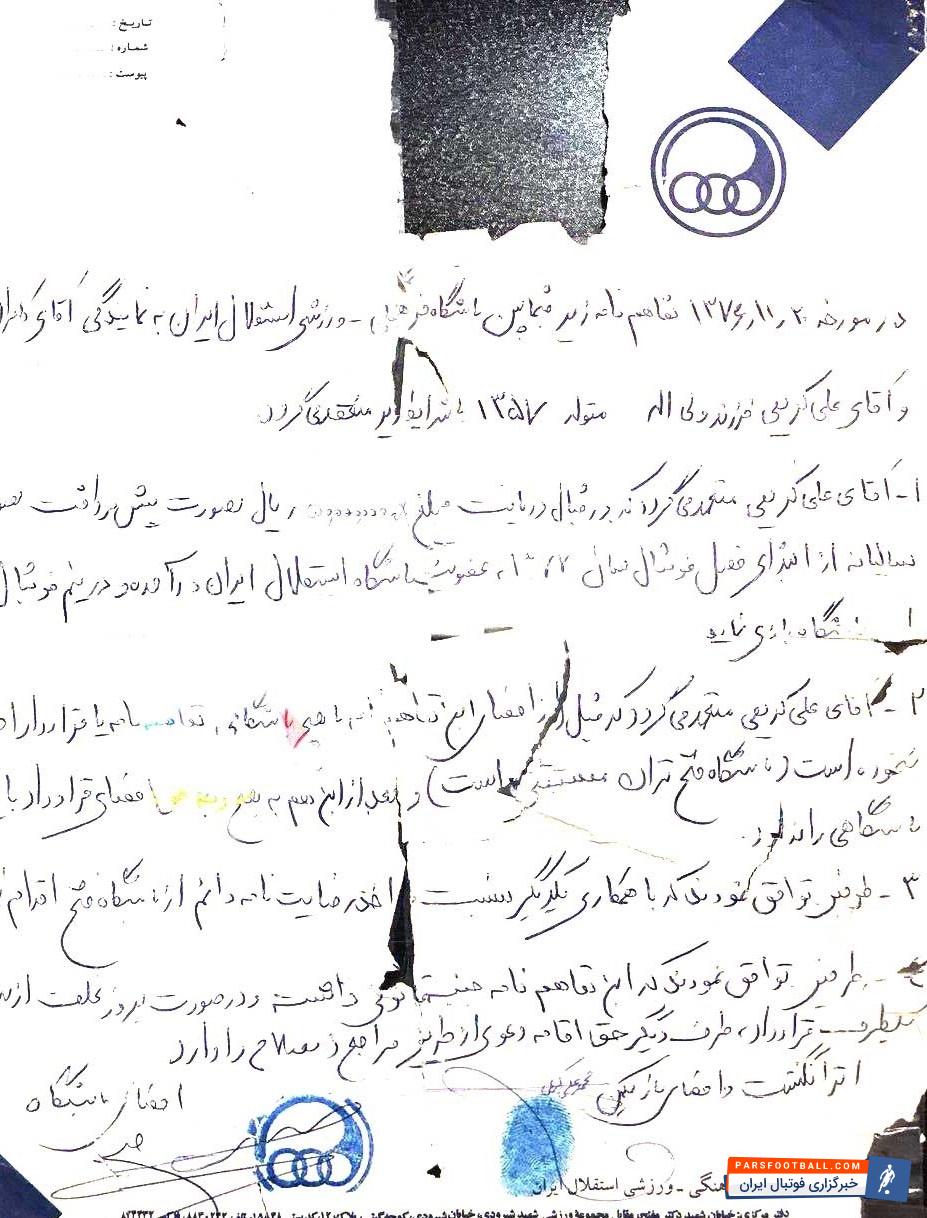 تاریخ :
شماره :
پیوست :
در مورخه ۳۰ر۱۱ر۱۳۷۶ تفاهم نامه زیر فیمابین باشگاه فرهنگی - ورزشی استقلال ایران به نمایندگی آقای
و آقای علی کریمی فرزند ولی اله متولد ۱۳۵۷ با شرایط زیر منعقد می گردد
۱- آقای علی کریمی متعهد می گردد که در قبال دریافت مبلغ ریال بصورت پیش پرداخت
سالیانه از ابتدای فصل فوتبال سال ۷۷ به عضویت باشگاه استقلال ایران در آمده و در تیم فوتبال
باشگاه بازی نماید
۲- آقای علی کریمی متعهد می گردد که قبل از امضای این تفاهم نامه با هیچ باشگاهی تفاهم نامه یا قرارداد
ننموده است (باشگاه فتح تهران مستثنی است) و بعد از این هم به هیچ وجه حق امضای قرارداد با
باشگاهی را ندارد.
۳- طرفین توافق نمودند که با همکاری یکدیگر نسبت به اخذ رضایت نامه دائم از باشگاه فتح اقدام
۴- طرفین توافق نمودند که این تفاهم نامه جنبه قانونی داشته و در صورت بروز تخلف از
یکطرف قرارداد، طرف دیگر حق اقامه دعوی از طریق مراجع ذیصلاح را دارد
اثر انگشت و امضای بازیکن
امضای باشگاه
هنگی - ورزشی استقلال ایران
PARSFOOTBALL.COM
خبرگزاری فوتبال ایران